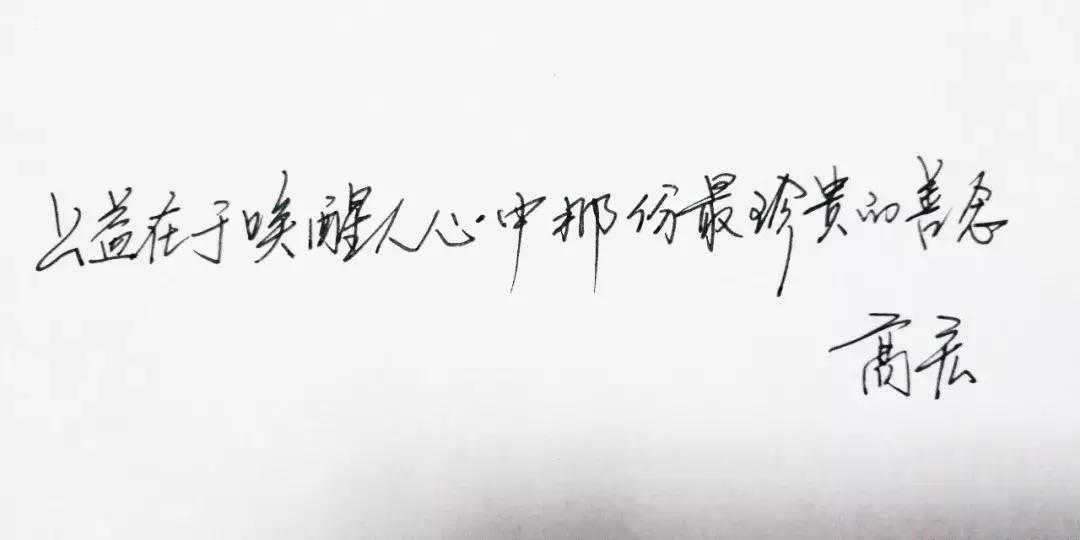 公益在于唤醒人心中那份最珍贵的善念
高宏